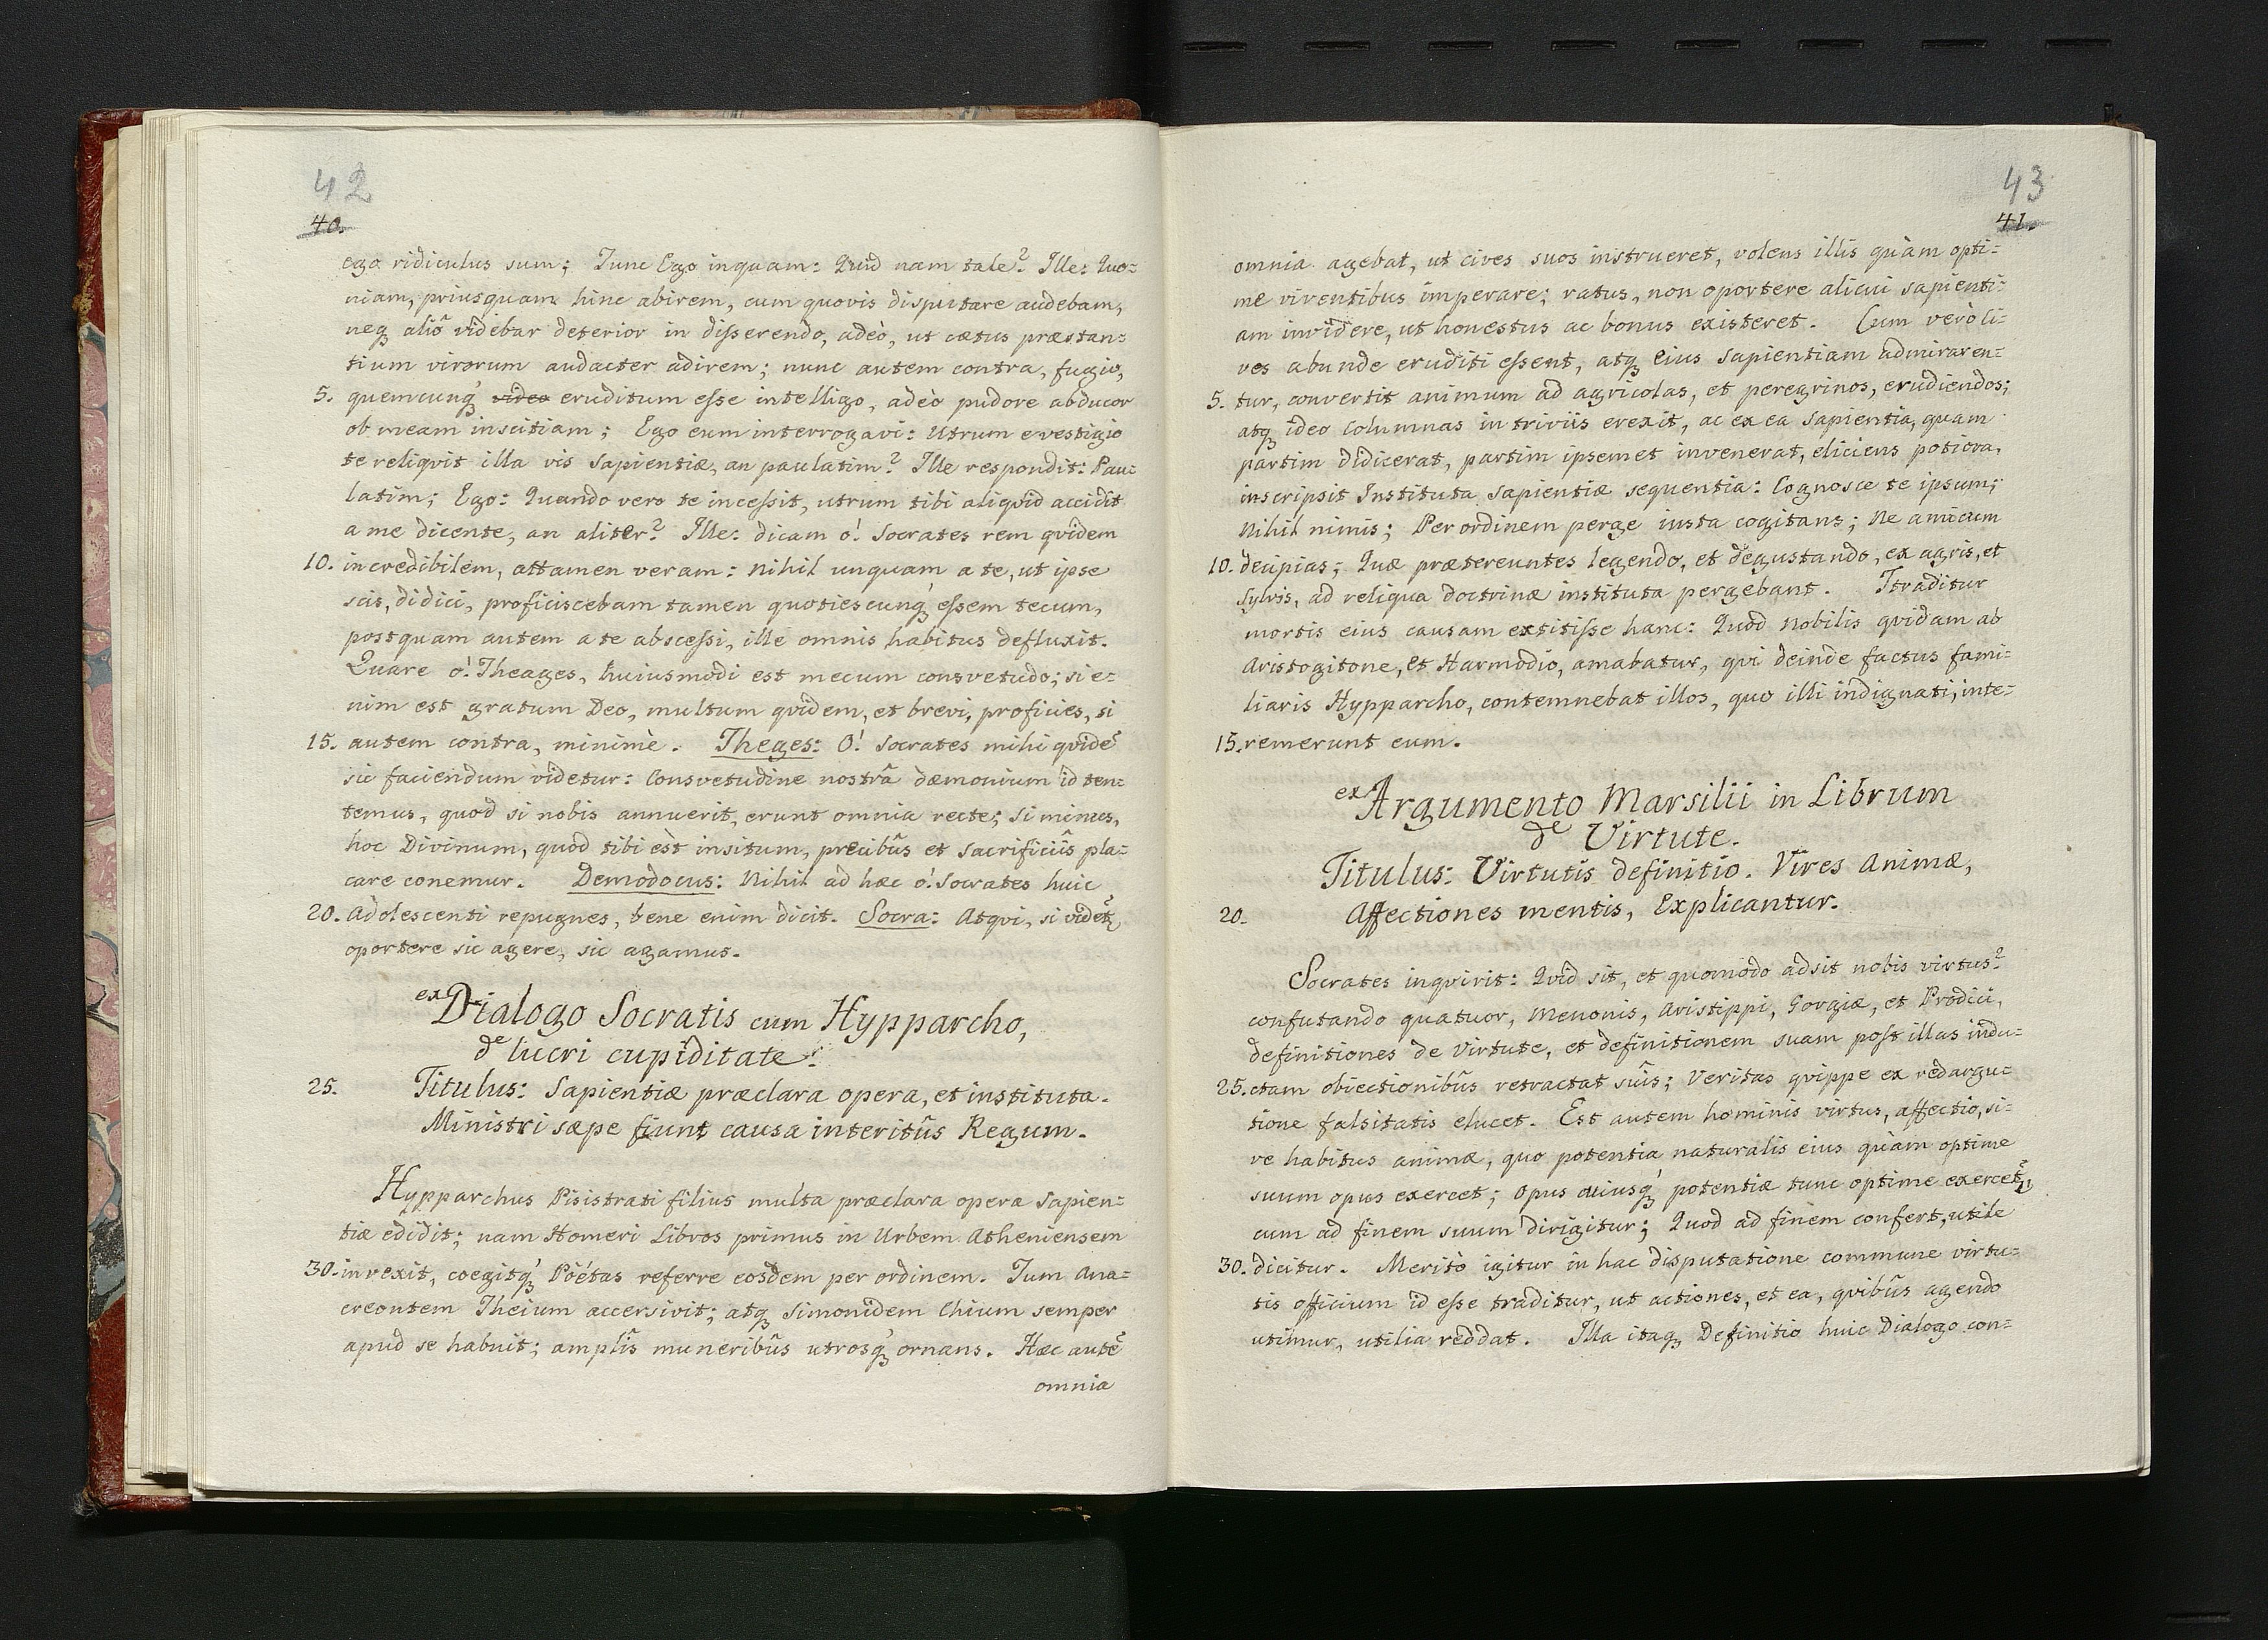 42
40.
ego ridiculus sum; Tunc Ego inquam: Quid nam tale? Ille: Quo=
niam, priusquam hinc abirem, cum quovis disputare audebam,
neq₃ aliô videbar deterior in disserendo, adeò, ut cætus præstan=
tium virorum audacter adirem; nunc autem contra, fugio,
5. quemcunq₃́ video eruditum esse intelligo, adeò pudore abducor
ob meam inscitiam; Ego eum interrogavi: Utrum evestigio
te reliqvit illa vis Sapientiæ, an paulatim? Ille respondit: Pau=
latim; Ego: Quando vero te incessit, utrum tibi aliqvid accidit
a me dicente, an aliter? Ille: dicam o! Socrates rem qvidem
10. incredibilem, attamen veram: Nihil unquam a te, ut ipse
scis, didici, proficiscebam tamen quotiescunq₃́ essem tecum,
postquam autem a te abscessi, ille omnis habitus defluxit.
Quare o! Theages, huiusmodi est mecum consvetudo; si e=
nim est gratum Deo, multum qvidem, et brevi, proficies, si
15. autem contra, minimè. Theges: O! Socrates mihi qvidẽ
sic faciendum videtur: Consvetudine nostrâ dæmonium id ten=
temus, quod si nobis annuerit, erunt omnia recte; si minus,
hoc Divinum, quòd tibi èst insitum, precibûs et Sacrificiîs pla=
care conemur. Demodocus: Nihil ad hæc o! Socrates huic
20. Adolescenti repugnes, bene enim dicit. Socra: Atqvi, si videt₃̃
oportere sic agere, sic agamus.
ex Dialogo Socratis cum Hypparcho,
de lucri cupiditate:
25. Titulus: Sapientiæ præclara opera, et instituta.
Ministri sæpe fiunt causa interitûs Regum.
Hypparchus Pisistrati filius multa præclara opera Sapien=
tiæ edidit; nam Homeri Libros primus in Urbem Atheniensem
30. invexit, coegitq₃́ Poëtas referre eosdem per ordinem. Tum Ana=
creontem Theium accersivit; atq₃ Simonidem Chium semper
apud se habuit; amplîs muneribûs utrosq₃́ ornans. Hæc autẽ
omnia
43
41.
omnia agebat, ut cives suos instrueret, volens illis quàm opti=
me viventibus imperare; ratus, non oportere alicui sapienti=
am invidere, ut honestus ac bonus existeret. Cum verò Ci=
ves abunde eruditi essent, atq₃ eius Sapientiam admiraren=
5. tur, convertit animum ad agricolas, et peregrinos, erudiendos;
atq₃ ideo Columnas in triviis erexit, ac ex ea Sapientia, quam
partim didicerat, partim ipsemet invenerat, eliciens potiora,
inscripsit Instituta Sapientiæ sequentia: Cognosce te ipsum;
Nihil nimis; Per ordinem perge iusta cogitans; Ne amicum
10. decipias; Quæ prætereuntes legendo, et degustando, ex agris, et
Sylvis, ad reliqua doctrinæ instituta pergebant. Ttraditur
mortis eius causam extitisse hanc: Quòd Nobilis qvidam ab
Aristogitone, et Harmodio, amabatur, qvi deinde factus fami=
liaris Hypparcho, contemnebat illos, quo illi indignati, inte=
15. remerunt eum.
ex Argumento Marsilii in Librum
de Virtute.
Titulus: Virtutis definitio. Vires Animæ,
20. Affectiones mentis, Explicantur.
Socrates inqvirit: Qvid sit, et quomodo adsit nobis virtus?
confutando quatuor, Menonis, Aristippi, Gorgiæ, et Prodici,
definitiones de Virtute, et definitionem suam post illas indu=
25. ctam obiectionibûs retractat suîs; Veritas qvippe ex redargu=
tione falsitatis elucet. Est autem hominis virtus, affectio, si=
ve habitus animæ, quo potentia naturalis eius quàm optime
suum opus exercet; Opus cuiusq₃́ potentiæ tunc optime exercet₃̃,
cum ad finem suum dirigitur; Quod ad finem confert, utile
30. dicitur. Meritò igitur in hac disputatione commune virtu=
tis officium id esse traditur, ut actiones, et ea, qvibûs agendo
utimur, utilia reddat. Illa itaq₃ Definitio huic Dialogo con=